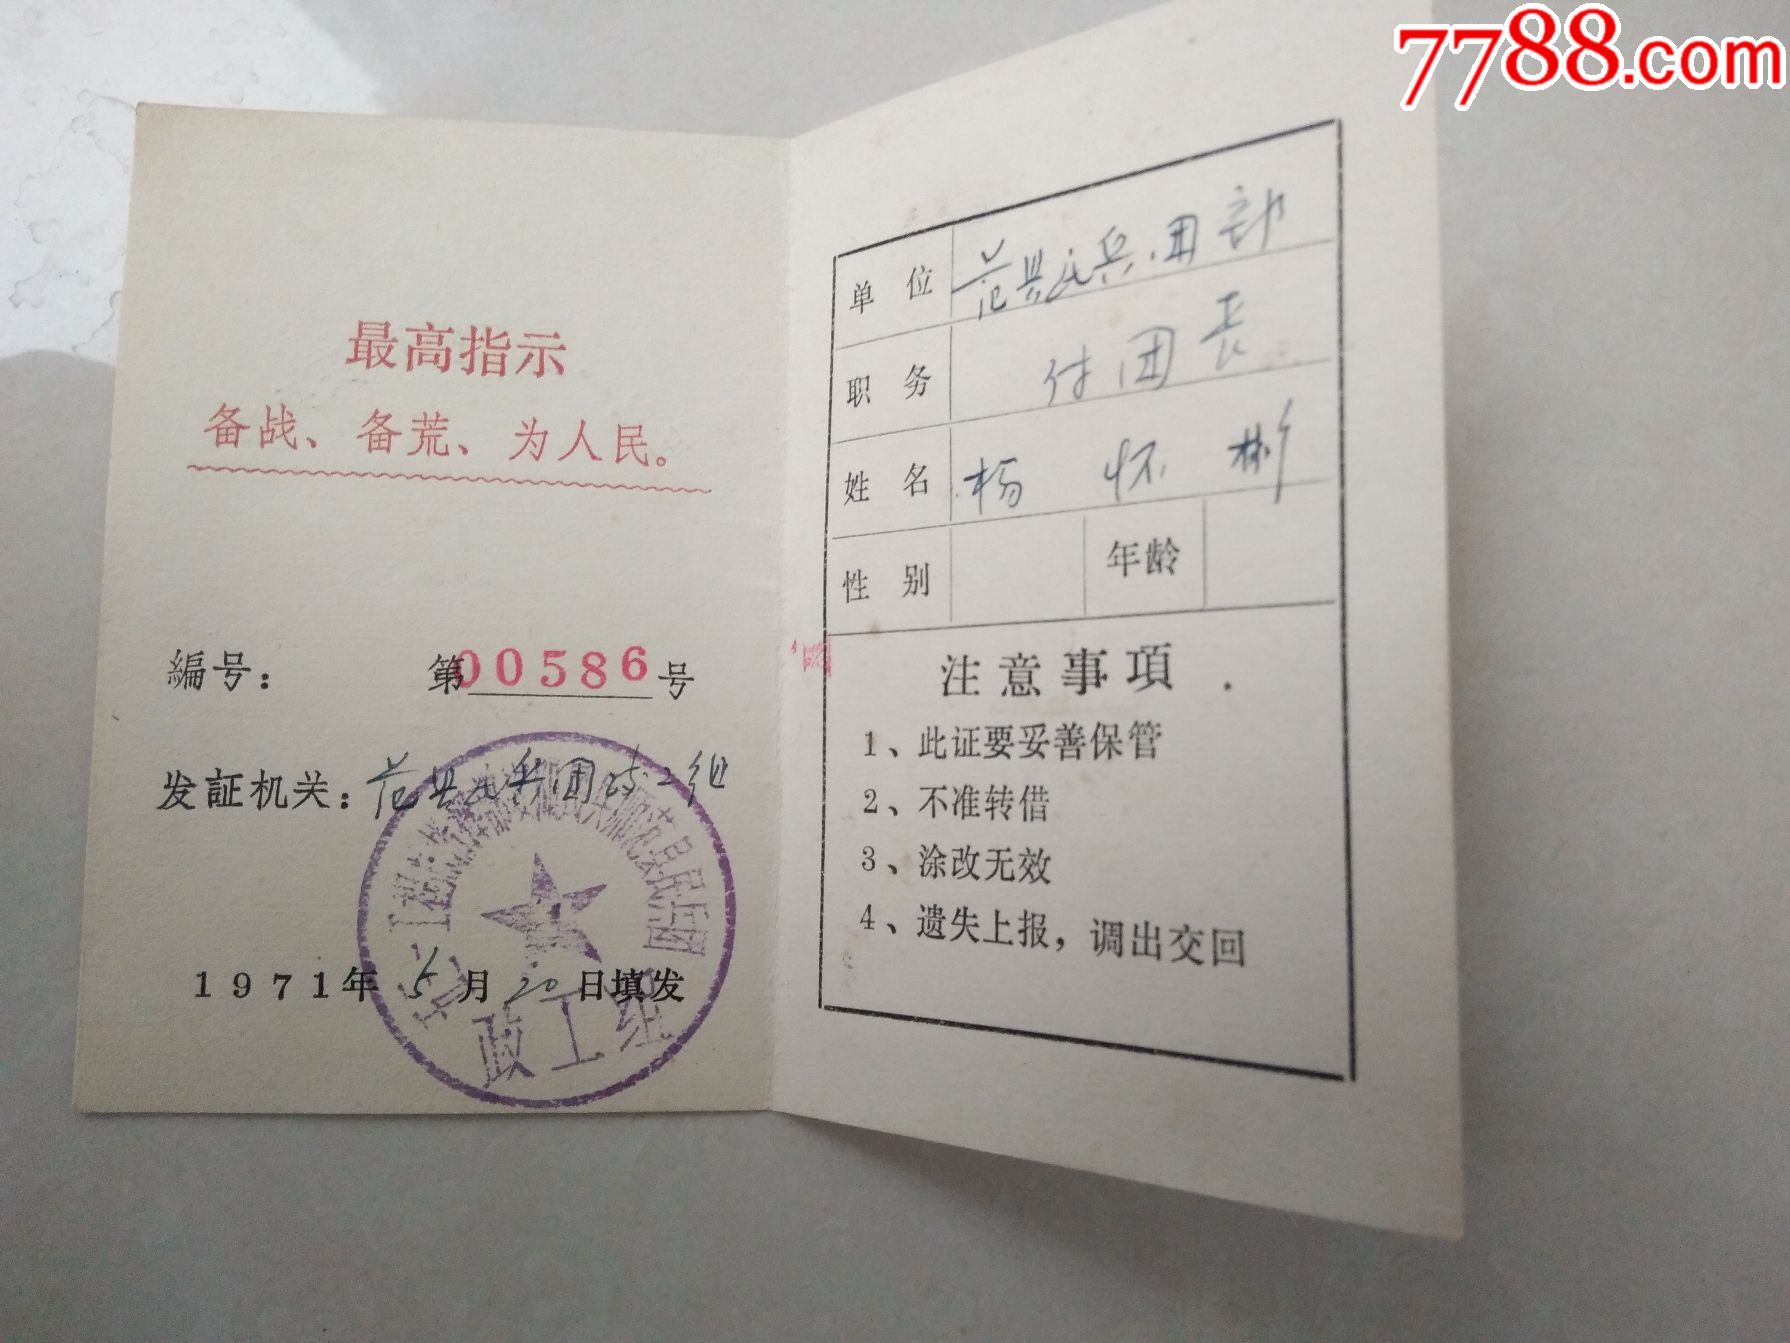 7788.com
最高指示
备战、备荒、为人民。
編号： 第00586号
发証机关：范县民兵团政工组
1971年5月20日填发
政工组
单位 范县民兵团部
职务 付团长
姓名 杨怀彬
性别 年龄
注意事項
1、此证要妥善保管
2、不准转借
3、涂改无效
4、遗失上报，调出交回